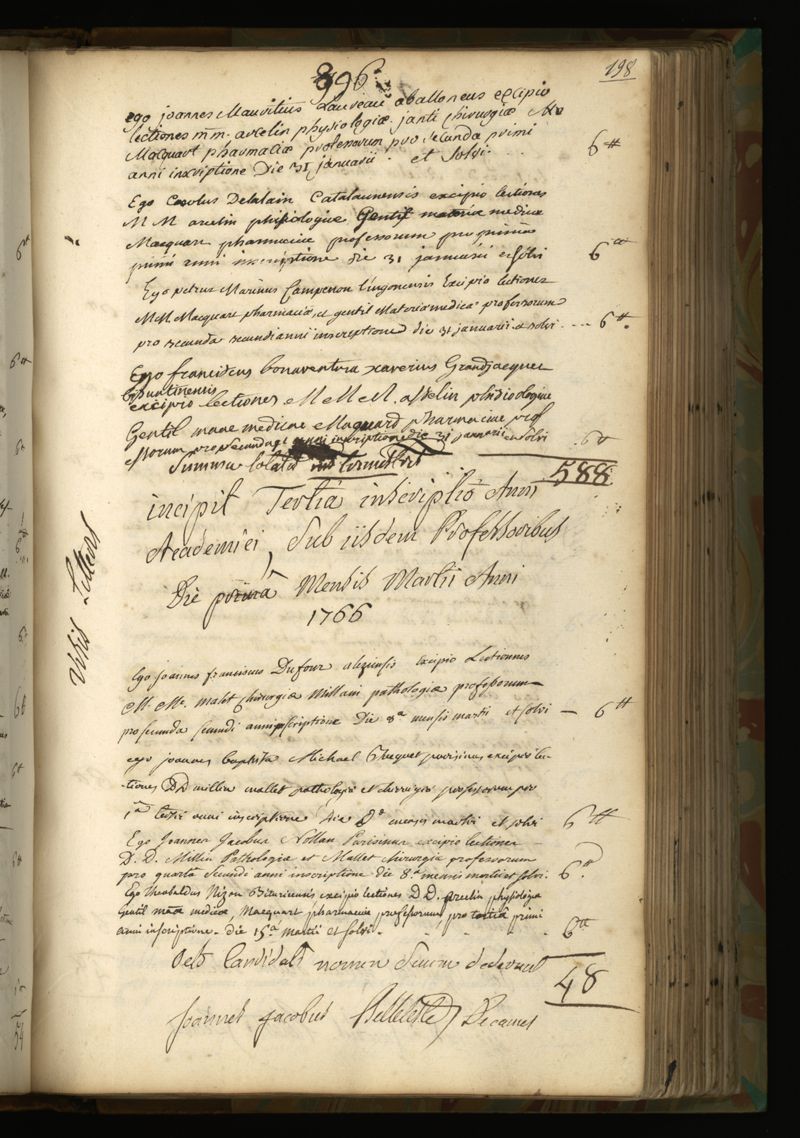 896
198
ego joannes Mauritius Laureau aballoneus excipio
lectiones mm. azelin physiologiæ janti chirurgiæ
Macquart pharmaciæ professorum pro secunda primi
anni inscriptione Die 31 januarii et solvi. 6 ₶
Ego Carolus Delalain Catalaunensis excipio lectiones
M M azelin phisiologiæ Gentil materia medicæ
Macquart pharmaciæ professorum pro
primi anni inscriptione die 31 januarii et solvi 6 ₶
Ego petrus Marinus Camperon lingonensis Excipio lectiones
M.M. Macquart pharmacia, et gentil Materia medica professorum
pro secunda secundi anni inscriptione die 31 januarii et solvi 6 ₶
Ego franciscus bonaventura xaverius Grandjacquet
bisuntinensis
excipio lectiones M M M. azelin phisiologiae
Gentil mae medicae Macquard pharmaciae prof
essorum pro secunda anni inscriptione die 31 januarii et solvi 6 ₶
Summa totalis 588
incipit Tertia inscriptio Anni
Academici, Sub iisdem Professoribus
Die prima Mensis Martii Anni
1766
Ego joannes franciscus Dufour excipio Lectiones
M. M. malet chirurgiæ Millani pathologiæ professorum
pro secunda secundi anni inscriptione Die 8a mensis martii et solvi — 6 ₶
ego joannes baptista Michael parisinus excipio lec-
-tiones DD millin mallet pathologiæ et chirurgiæ professorum pro
1a tertii anni inscriptione die 8a mensis martii et solvi 6 ₶
Ego Joannes Jacobus Nollau Parisinus excipio lectiones
D. D. Millin Pathologia et Mallet chirurgia professorum
pro quarta secundi anni inscriptione die 8a mensis martii et solvi. 6 ₶
Ego Theobaldus Nizon Bituricensis excipio lectiones D.D. azelin physiologiæ
Gentil mæ medicæ, Macquart pharmaciæ professorum pro tertia primi
anni inscriptione die 15a martii et solvi. 6 ₶
Octo Candidati nomen Suum dederunt 48
Joannes Jacobus Belleteste, Decanus